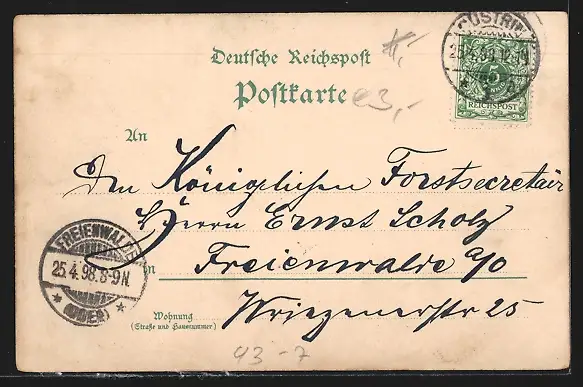 Deutsche Reichspost
Postkarte
CÜSTRIN
REICHSPOST
e3,-
An
Den Königlichen Forstsecretair
Herrn Ernst Scholz
in Freienwalde a/O
Wriezenerstr 25
Wohnung
(Straße und Hausnummer)
FREIENWALDE
25.4.98.8-9N.
(ODER)
43-7